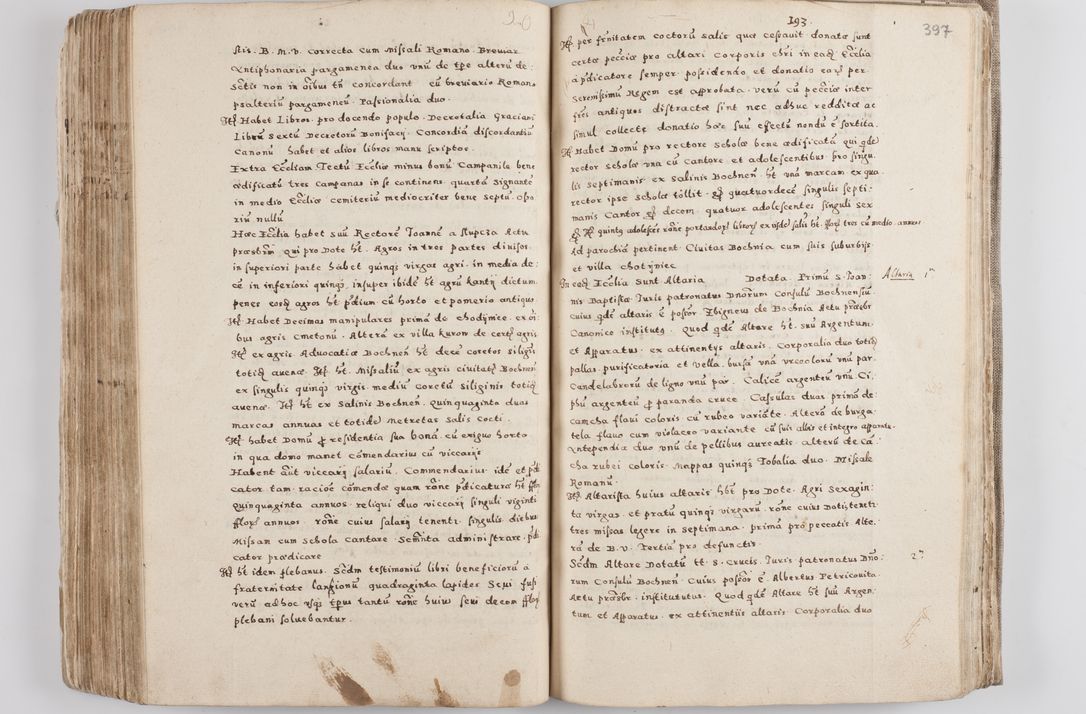 stis. B. M. v. correcta cum Missali Romano. Breviar
Antiphonaria pargamenea duo vnũ de tpe alterũ de:
Sctis non in oibus tñ concordant cũ breviario Romano
psalteriũ pargameneũ. Passionalia duo.
Itē Habet Libros pro docendo populo. Decretalia Graciani
Librũ Sextũ Decretorũ Bonifacij. Concordiã discordantiũ
Canonũ habet et alios libros manu scriptos.
Extra Eccliam Tectũ Eccliæ minus bonũ Campanile bene
ædificatũ tres campanas in se continens quartã Signantẽ
in medio Eccliæ cemiteriũ mediocriter bene septũ. Osso
riũ nullũ
Hæc Ecclia habet suũ Rectorẽ Joannẽ a Slupcza Actu
præsbrm̃ qui pro Dote ht. Agros in tres partes diuisos.
in superiori parte habet quinqȝ virgas agri. in media de:
cẽ in inferiori quinqȝ, insuper ibidẽ ht agrũ kantỹ dictum
penes eosdẽ agros ht pdium cũ horto et pomerio antiquo
Itē Habet Decimas manipulares primã de chodynicẽ. ex oi
bus agris cmetonũ. Alterã ex villa kurow de certis agris
Itē ex agris Advocatiæ Bochneñ ht decẽ coretos siligis
totidẽ auenæ. Itē ht. Missaliũ ex agris ciuitatis Bochneñ
ex singulis quinqȝ virgis mediũ coretũ Siliginis totidẽ
auenæ. Itē ht ex Salinis Bochneñ. Quinquaginta duas
marcas annuas et totidẽ Metretas Salis cocti.
Itē habet Domũ p residentia sua bonã. cũ exiguo horto
in qua domo manet cõmendarius cũ viccarijs
Habent aũt viccarij salariũ. Commendarius idẽ et pdi
cator tam racioẽ cõmendæ quam rõne pdicaturæ ht flor
Quinquaginta annuos. reliqui duo viccarij singuli viginti
flor annuos. rõne cuius salarij tenentr singulis diebus
Missam cum Schola cantare. Sacrãnta administrare. pdi
cator prædicare
Itē ht idem plebanus. Scdm testimoniũ libri beneficiorũ a
fraternitate lanionũ quadraginta lapides Seui fusi
verũ adhoc vsqȝ tpus tantũ rõne huius seui decem flor
plebani soluebantur.
193.
397
Itē per frnitatem coctorũ salis quæ cessauit donatæ sunt
certæ pecciæ pro altari Corporis chri in eadẽ Ecclia
a pdicatore semper possidendo et donatio earũ per
Serenissimũ Regem est approbata. verũ cũ pecciæ inter
fres antiquos distractæ sint nec adhuc redditæ ac
simul collectæ donatio hæc suũ effectũ nondũ ẽ sortita.
Itē Habet Domũ pro rectore scholæ bene ædificatã qui qdẽ
rector scholæ vna cũ cantore et adolescentibus pro singu
lis septimanis ex Salinis Bochneñ ht vnã marcam ex qua
rector ipse scholæ tollit gr quatuordecẽ singulis septi:
manis Cantor gr decem. quatuor adolescentes singuli sex
gr Itē quintus adolescẽs rõne portandorũ librorũ ex ijsdẽ salis ht. flor tres cũ medio annuos
Ad parochiã pertinent Ciuitas Bochnia cum suis suburbijs
et villa chotyniec
In eadẽ Ecclia sunt Altaria Dotata. Primũ S. Joan:
nis Baptistæ Juris patronatus Dnorum Consulũ Bochnensiũ
cuius qdẽ altaris ẽ possor Zbigneus de Bochnia Actu præsbr
Canonice institutus. Quod qdẽ Altare ht. suũ Argentum
et Apparatus. ex attinentijs altaris. Corporalia duo totidẽ
pallas. purificatoria et vella. bursã vnã vrceolorũ vnũ par.
Candelabrorũ de ligno vnũ par. Calicẽ argenteũ vnũ. Ci
phũ argenteũ p paranda cruce. Casulas duas primã de
camcha flaui coloris cũ rubeo variãte. Alterã de burga
tela flauo cum violaceo variante cũ suis albis et integro apparatu
Antependia duo vnũ de pellibus aureatis. alterũ de cã
cha rubei coloris. Mappas quinqȝ Tobalia duo. Missale
Romanũ.
Itē Altarista huius altaris hẽt pro Dote. Agri Sexagin:
ta virgas. et pratũ quinqȝ virgarũ. rõne cuius Dotis tenetr
tres missas legere in septimana. primã pro peccatis Alte:
rã de B. v. Tertiã pro defunctis.
Scdm Altare Dotatũ tt. s. crucis. Juris patronatus Dño:
rum Consulũ Bochneñ. Cuius possor ẽ Albertus Petricouita
Actu præsbr. institututus. Quod qdẽ Altare ht suũ Argen:
tum et Apparatus. ex attinentiis altaris. Corporalia duo
Altaria 1m
2m